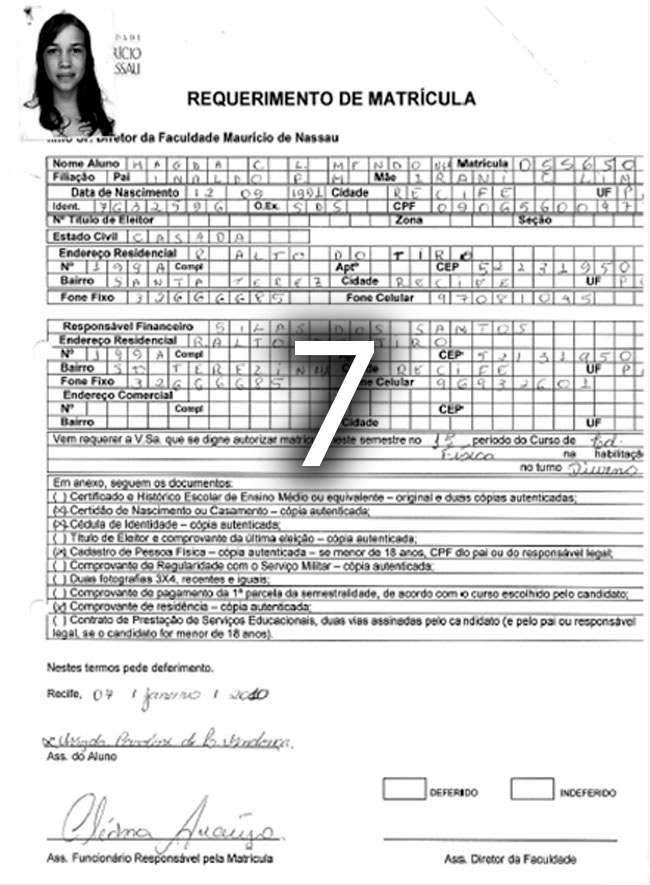 DADE
RÍCIO
SSAU
REQUERIMENTO DE MATRÍCULA
Diretor da Faculdade Maurício de Nassau
Nome Aluno MAGDA C. L. MENDO Matrícula 055650
Filiação Pai INALDO Mãe IRANI
Data de Nascimento 12 09 1991 Cidade RECIFE UF P
Ident. 7632596 O.Ex. SDS CPF 0906560097
Nº Título de Eleitor Zona Seção
Estado Civil CASADA
Endereço Residencial R ALTO DO TIRO
Nº 199A Compl Aptº CEP 52231950
Bairro SANTA TEREZ Cidade RECIFE UF P
Fone Fixo 32666685 Fone Celular 97081045
Responsável Financeiro SILAS DOS SANTOS
Endereço Residencial R ALTO TIRO
Nº 199A Compl CEP 52131950
Bairro Cidade RECIFE UF P
Fone Fixo 32666685 Fone Celular 96932601
Endereço Comercial
Nº Compl CEP
Bairro Cidade UF
7
Vem requerer a V.Sa. que se digne autorizar neste semestre no 1º período do Curso de Ed.
Física na habilitaçã
no turno Diurno
Em anexo, seguem os documentos:
( ) Certificado e Histórico Escolar de Ensino Médio ou equivalente – original e duas cópias autenticadas;
(x) Certidão de Nascimento ou Casamento – cópia autenticada;
(x) Cédula de Identidade – cópia autenticada;
( ) Título de Eleitor e comprovante da última eleição – cópia autenticada;
(x) Cadastro de Pessoa Física – cópia autenticada – se menor de 18 anos, CPF do pai ou do responsável legal;
( ) Comprovante de Regularidade com o Serviço Militar – cópia autenticada;
( ) Duas fotografias 3X4, recentes e iguais;
( ) Comprovante de pagamento da 1ª parcela da semestralidade, de acordo com o curso escolhido pelo candidato;
(x) Comprovante de residência – cópia autenticada;
( ) Contrato de Prestação de Serviços Educacionais, duas vias assinadas pelo candidato (e pelo pai ou responsável
legal, se o candidato for menor de 18 anos).
Nestes termos pede deferimento.
Recife, 07 / janeiro / 2010
Ass. do Aluno
DEFERIDO INDEFERIDO
Cléoma Araújo
Ass. Funcionário Responsável pela Matrícula Ass. Diretor da Faculdade